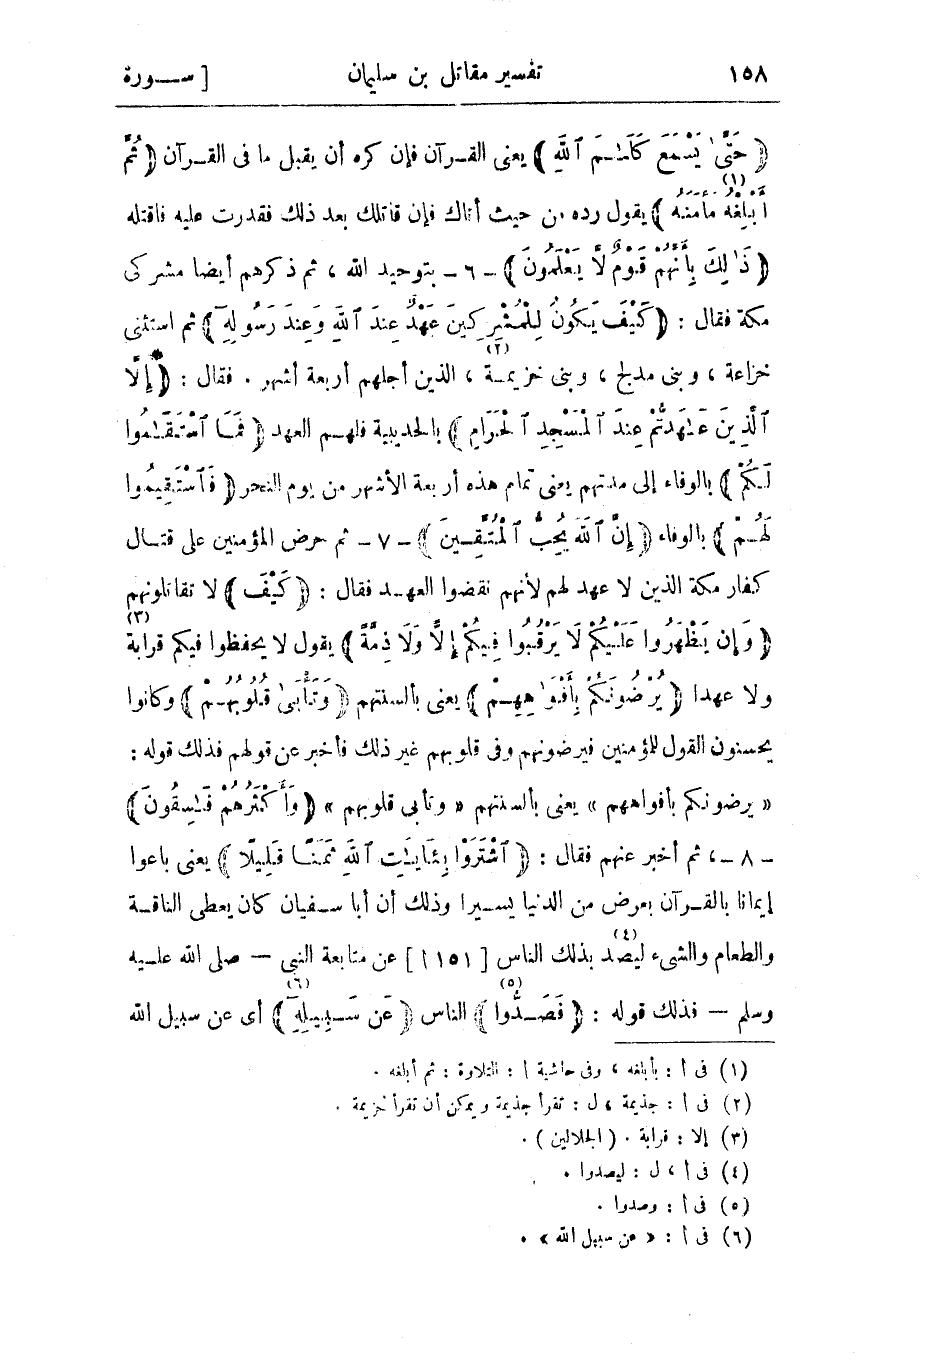 ١٥٨ تفسير مقاتل بن سليمان [ ســورة
﴿ حَتَّىٰ يَسْمَعَ كَلَـٰمَ ٱللَّهِ ﴾ يعنى القـرآن فإن كره أن يقبل ما فى القـرآن ﴿ ثُمَّ
أَبْلِغْهُ مَأْمَنَهُ ﴾ (١) يقول رده من حيث أتاك فإن قاتلك بعد ذلك فقدرت عليه فاقتله
﴿ ذَٰلِكَ بِأَنَّهُمْ قَوْمٌ لَّا يَعْلَمُونَ ﴾ ـ ٦ ـ بتوحيد الله ، ثم ذكرهم أيضا مشركى
مكة فقال : ﴿ كَيْفَ يَكُونُ لِلْمُشْرِكِينَ عَهْدٌ عِندَ ٱللَّهِ وَعِندَ رَسُولِهِۦٓ ﴾ ثم استثنى
خزاعة ، وبنى مدلج ، وبنى خزيمـة (٢) ، الذين أجلهم أربعة أشهر . فقال : ﴿ * إِلَّا
ٱلَّذِينَ عَـٰهَدتُّمْ عِندَ ٱلْمَسْجِدِ ٱلْحَرَامِ ﴾ بالحديبية فلهـم العهد ﴿ فَمَا ٱسْتَقَـٰمُوا
لَـكُمْ ﴾ بالوفاء إلى مدتهم يعنى تمام هذه أربعة الأشهر من يوم النحر ﴿ فَٱسْتَقِيمُوا
لَهُـمْ ﴾ بالوفاء ﴿ إِنَّ ٱللَّهَ يُحِبُّ ٱلْمُتَّقِـينَ ﴾ ـ ٧ ـ ثم حرض المؤمنين على قتـال
كفار مكة الذين لا عهد لهم لأنهم نقضوا العهـد فقال : ﴿ كَيْفَ ﴾ لا تقاتلونهم
﴿ وَإِن يَظْهَرُوا عَلَيْكُمْ لَا يَرْقُبُوا فِيكُمْ إِلًّا وَلَا ذِمَّةً ﴾ يقول لا يحفظوا فيكم قرابة (٣)
ولا عهدا ﴿ يُرْضُونَكُمْ بِأَفْوَٰهِهِـمْ ﴾ يعنى بألسنتهم ﴿ وَتَأْبَىٰ قُلُوبُهُـمْ ﴾ وكانوا
يحسنون القول للمؤمنين فيرضونهم وفى قلوبهم غير ذلك فأخبر عن قولهم فذلك قوله :
« يرضونكم بأفواههم » يعنى بألسنتهم « وتأبى قلوبهم » ﴿ وَأَكْثَرُهُمْ فَـٰسِقُونَ ﴾
ـ ٨ ـ ، ثم أخبر عنهم فقال : ﴿ ٱشْتَرَوْا بِـَٔايَـٰتِ ٱللَّهِ ثَمَنًـا قَلِيلًا ﴾ يعنى باعوا
إيمانا بالقـرآن بعرض من الدنيا يسـيرا وذلك أن أبا سـفيان كان يعطى الناقـة
والطعام والشىء ليصد (٤) بذلك الناس [ ١٥١ أ ] عن متابعة النبى — صلى الله عليـه
وسلم — فذلك قوله : ﴿ فَصَـدُّوا ﴾ (٥) الناس ﴿ عَن سَـبِيلِهِۦٓ ﴾ (٦) أى عن سبيل الله
(١) فى أ : بأبلغه ، وفى حاشية أ : التلاوة : ثم أبلغه .
(٢) فى أ : جذيمة ، ل : تقرأ جذيمة ويمكن أن تقرأ خزيمة .
(٣) إلا : قرابة . ( الجلالين ) .
(٤) فى أ ، ل : ليصدوا .
(٥) فى أ : وصدوا .
(٦) فى أ : « من سبيل الله » .